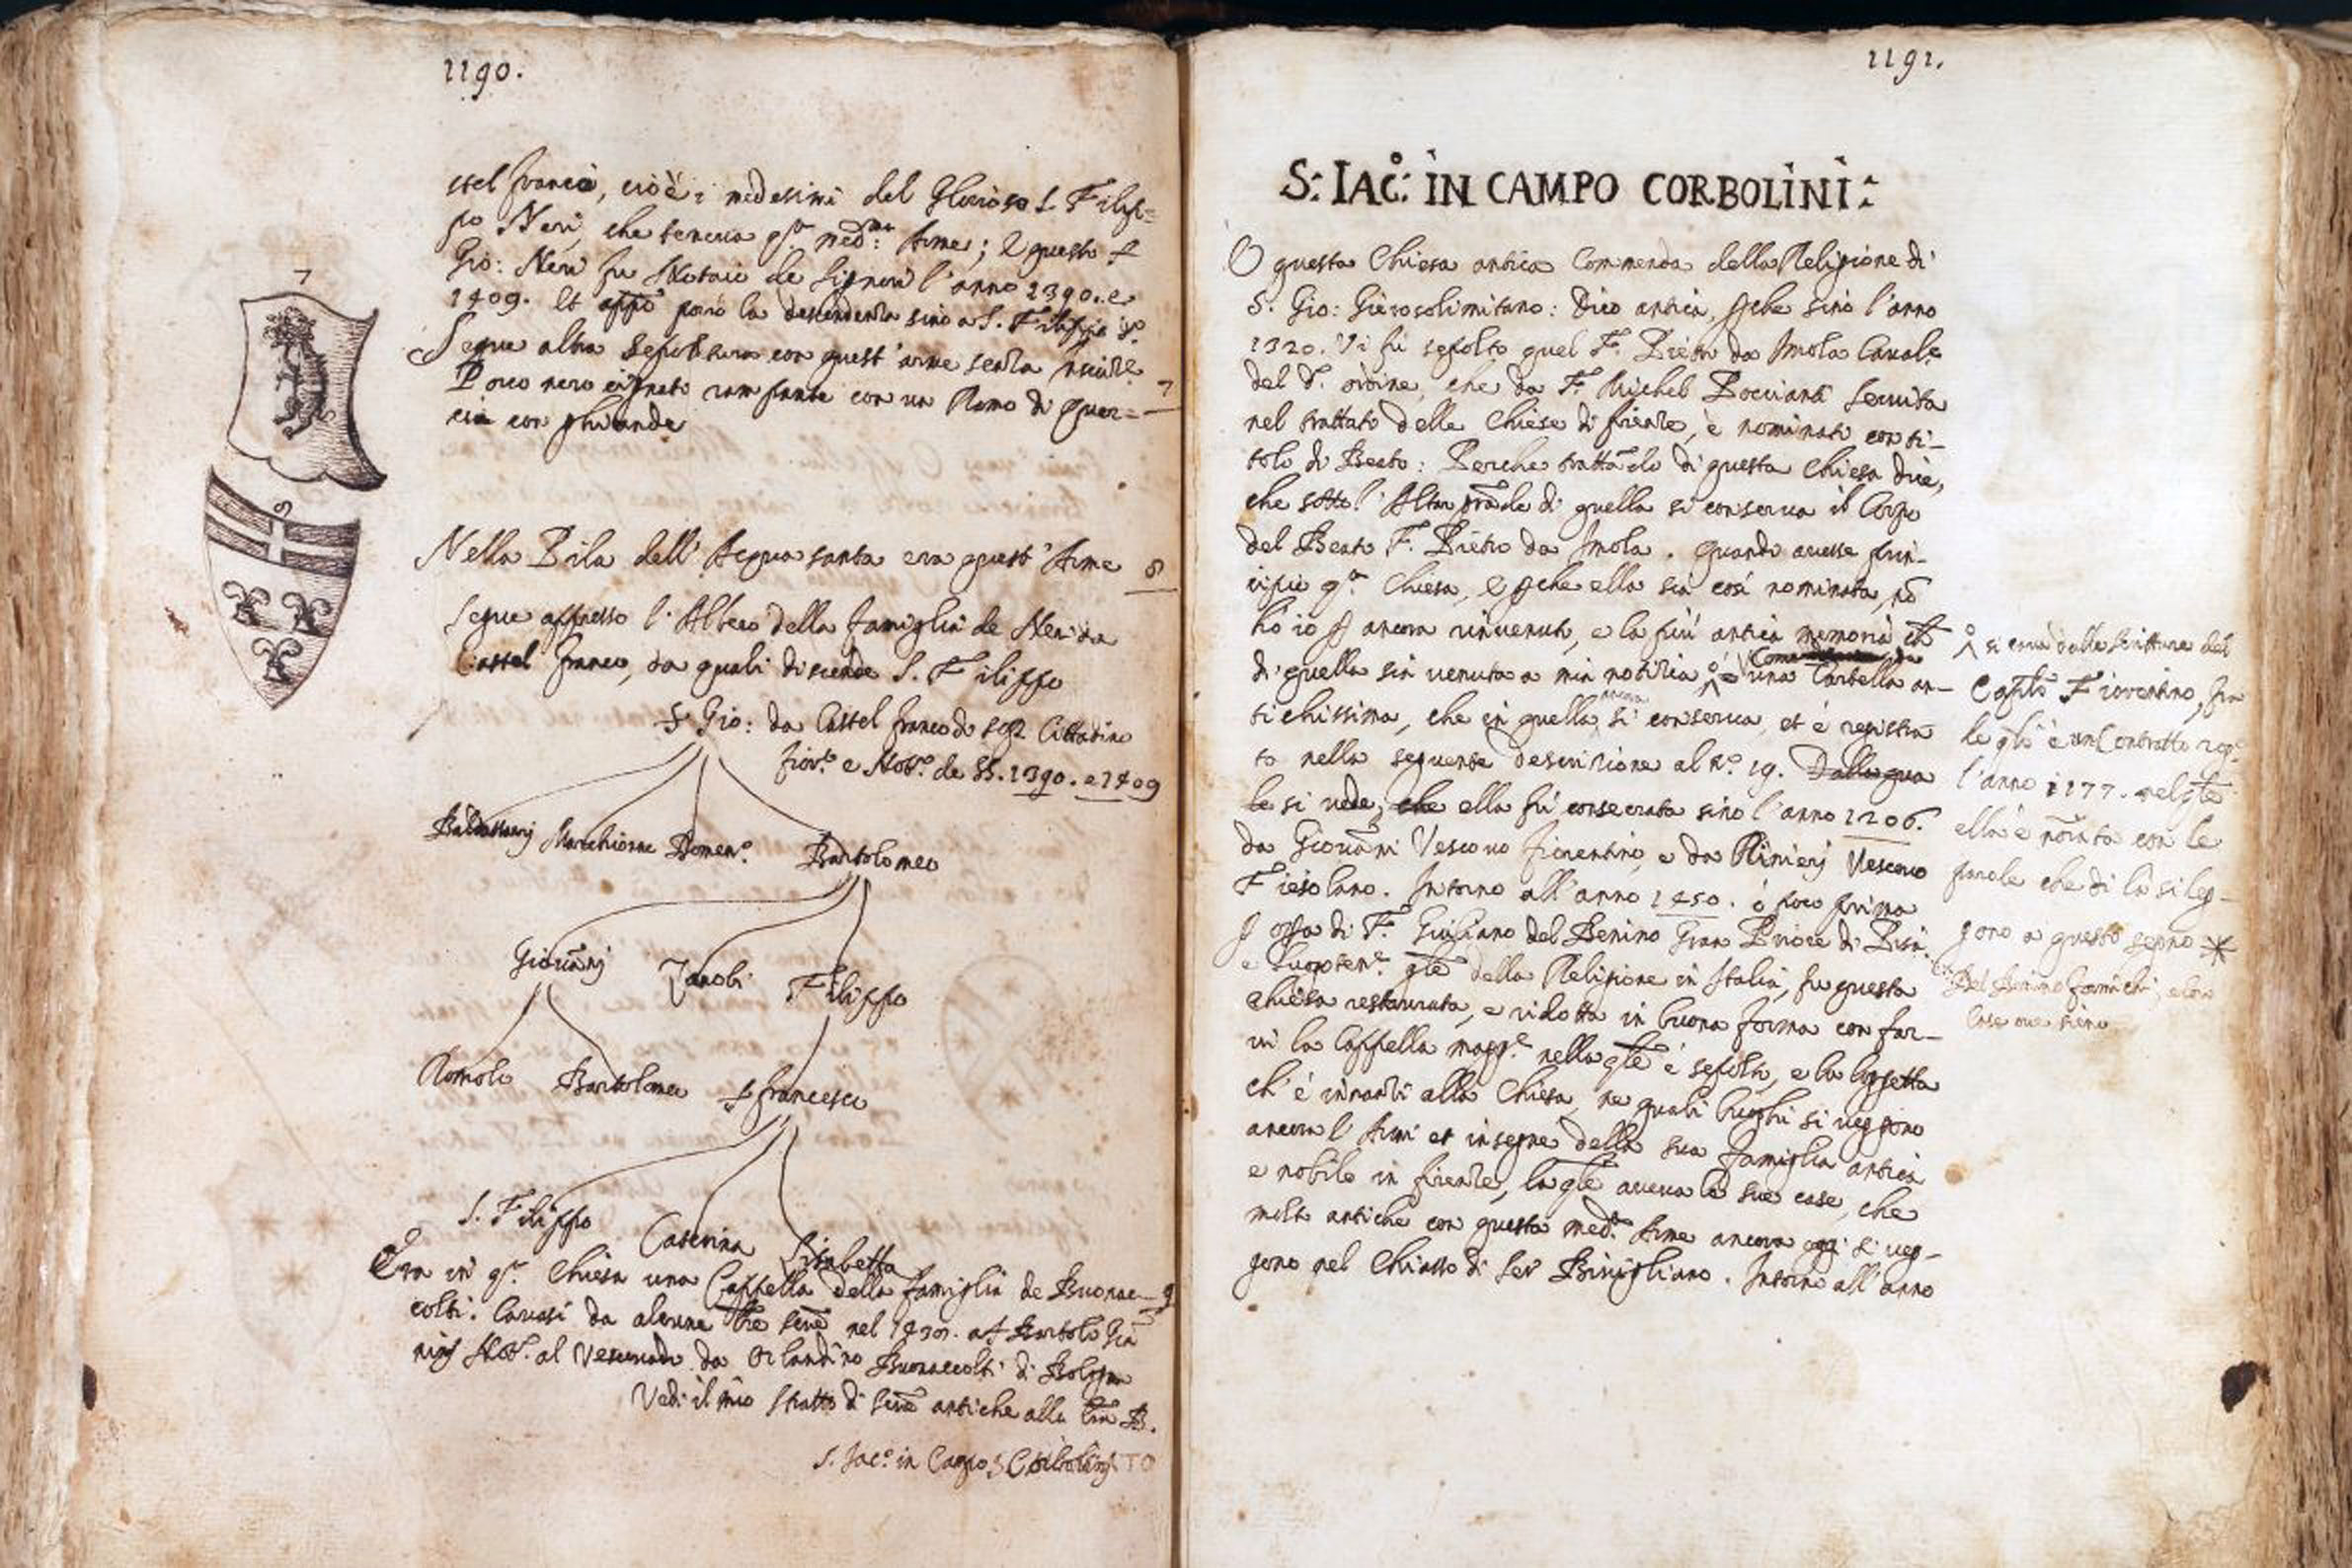 1190.
stel franco, cioè i medesimi del Glorioso S. Filip=
po Neri, che teneva qsta. med.ma Arme; e questo S.
Gio: Neri fu Notaio de Signori l'anno 1390. e
1409. et appo però la descendenza sino a S. Filippo
Segue altra sepoltura con quest'arme senza
Porco nero cignato rampante con un Ramo di quer= 7
cia con ghiande
7
8
Nella Pila dell'Acqua santa era quest'Arme 8
Segue appresso l'Albero della famiglia de Neri da
Castel franco, da quali discende S. Filippo
S. Gio: da Castel franco di Cittadino
fior.o e Not.o de SS. 1390. e 1409
Baldassarrj Marchionne Domen.o Bartolomeo
Giovãnj Zanobi Filippo
Romolo Bartolomeo S. francesco
S. Filippo Caterina Lisabetta
Era in qsta. Chiesa una Cappella della famiglia de Buonac= 9
colti. Cavasi da alcune nel Bartolo
Not. al Vescovado da Orlandino Buonaccolti di Bologna
Vedi il mio stratto di antiche alla B.
S. Iac.o in Campo Corbolinj
1191.
S: IAC.o: IN CAMPO CORBOLINI:
È questa Chiesa antica Commenda della Religione di
S. Gio: Gierosolimitano: Dico antica, perche sino l'anno
1320. Vi fù sepolto quel F. Pietro da Imola Caval.e
del d.o ordine, che da F. Michel Poccianti Servita
nel trattato delle Chiese di firenze, è nominato con ti-
tolo di Beato: Perche trattãdo di questa Chiesa dice,
che sotto l'Altar grãde di quella si conserva il Corpo
del Beato F. Pietro da Imola. Quando avesse prin-
cipio qsta. Chiesa, e perche ella sia così nominata, nõ
hò io per ancora rinvenuto, e la più antica memoria che
di quella sia venuta a mia notizia è una Cartella an-
tichissima, che in quella ancora si conserva, et è registra
to nella seguente descrizione al N.o 19. Dalla qua
le si vede, che ella fù consecrata sino l'anno 1206.
da Giovãni Vescovo fiorentino, e da Rinierj Vescovo
Fiesolano. Intorno all'anno 1450. ò poco prima
p opra di F. Giuliano del Benino Gran Priore di Pisa,
e Luogoten.e gñle della Religione in Italia, fu questa
Chiesa restaurata, e ridotta in buona forma con far-
vi la Cappella magg.e nella qle è sepolto, e la loggetta
ch'è innanzi alla Chiesa, ne quali luoghi si veggono
ancora l'Armi et insegne della sua famiglia antica
e nobile in firenze, la qle aveva le sue case, che
molto antiche con questa med.a Arme ancora oggi si veg-
gono nel Chiasso di Ser Bivigliano. Intorno all'anno
si cava dalle scritture del
Capito Fiorentino, fra
le qli è un Contratto
l'anno 1177. nel qle
ella è noñata con le
parole che di là si leg-
gono a questo segno *
Del Benino
Case ove sieno